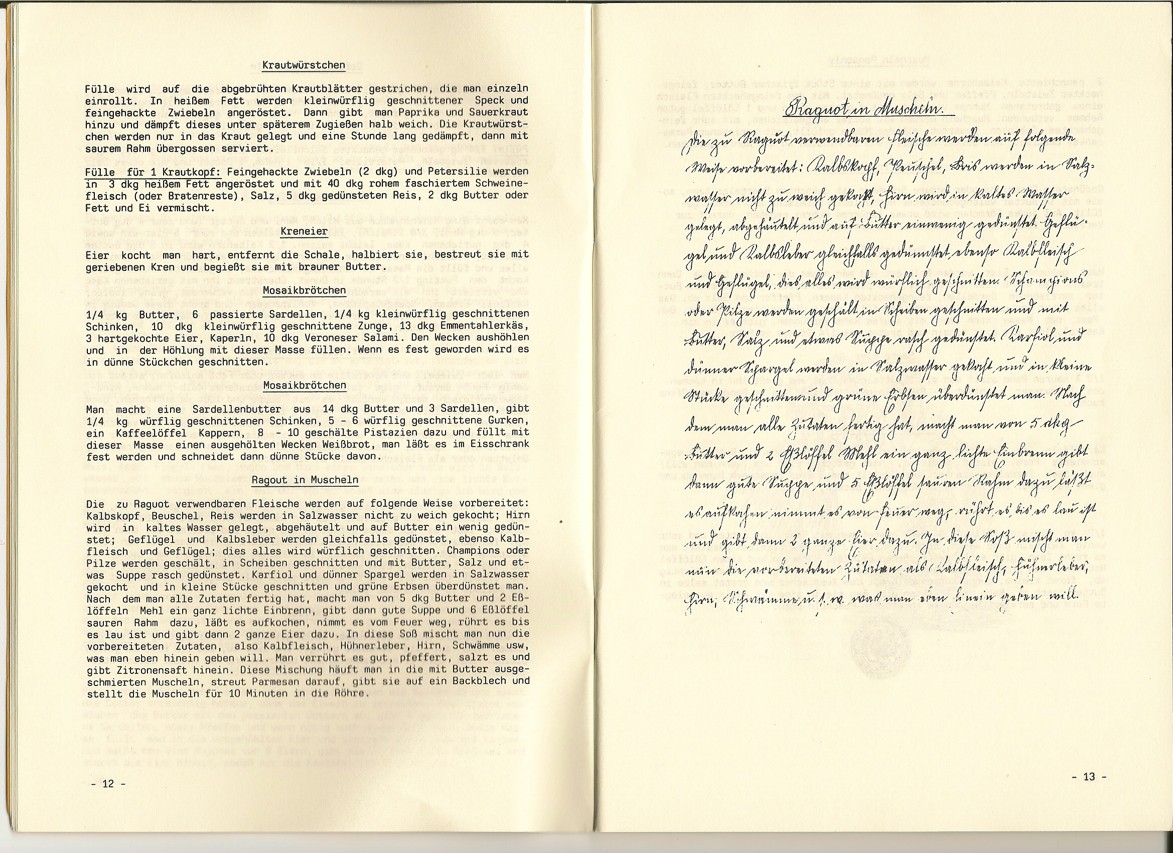 Krautwürstchen
Fülle wird auf die abgebrühten Krautblätter gestrichen, die man einzeln
einrollt. In heißem Fett werden kleinwürflig geschnittener Speck und
feingehackte Zwiebeln angeröstet. Dann gibt man Paprika und Sauerkraut
hinzu und dämpft dieses unter späterem Zugießen halb weich. Die Krautwürst-
chen werden nur in das Kraut gelegt und eine Stunde lang gedämpft, dann mit
saurem Rahm übergossen serviert.
Fülle für 1 Krautkopf: Feingehackte Zwiebeln (2 dkg) und Petersilie werden
in 3 dkg heißem Fett angeröstet und mit 40 dkg rohem faschiertem Schweine-
fleisch (oder Bratenreste), Salz, 5 dkg gedünsteten Reis, 2 dkg Butter oder
Fett und Ei vermischt.
Kreneier
Eier kocht man hart, entfernt die Schale, halbiert sie, bestreut sie mit
geriebenen Kren und begießt sie mit brauner Butter.
Mosaikbrötchen
1/4 kg Butter, 6 passierte Sardellen, 1/4 kg kleinwürflig geschnittenen
Schinken, 10 dkg kleinwürflig geschnittene Zunge, 13 dkg Emmentahlerkäs,
3 hartgekochte Eier, Kaperln, 10 dkg Veroneser Salami. Den Wecken aushöhlen
und in der Höhlung mit dieser Masse füllen. Wenn es fest geworden wird es
in dünne Stückchen geschnitten.
Mosaikbrötchen
Man macht eine Sardellenbutter aus 14 dkg Butter und 3 Sardellen, gibt
1/4 kg würflig geschnittenen Schinken, 5 - 6 würflig geschnittene Gurken,
ein Kaffeelöffel Kappern, 8 - 10 geschälte Pistazien dazu und füllt mit
dieser Masse einen ausgehölten Wecken Weißbrot, man läßt es im Eisschrank
fest werden und schneidet dann dünne Stücke davon.
Ragout in Muscheln
Die zu Raguot verwendbaren Fleische werden auf folgende Weise vorbereitet:
Kalbskopf, Beuschel, Reis werden in Salzwasser nicht zu weich gekocht; Hirn
wird in kaltes Wasser gelegt, abgehäutelt und auf Butter ein wenig gedün-
stet; Geflügel und Kalbsleber werden gleichfalls gedünstet, ebenso Kalb-
fleisch und Geflügel; dies alles wird würflich geschnitten. Champions oder
Pilze werden geschält, in Scheiben geschnitten und mit Butter, Salz und et-
was Suppe rasch gedünstet. Karfiol und dünner Spargel werden in Salzwasser
gekocht und in kleine Stücke geschnitten und grüne Erbsen überdünstet man.
Nach dem man alle Zutaten fertig hat, macht man von 5 dkg Butter und 2 Eß-
löffeln Mehl ein ganz lichte Einbrenn, gibt dann gute Suppe und 6 Eßlöffel
sauren Rahm dazu, läßt es aufkochen, nimmt es vom Feuer weg, rührt es bis
es lau ist und gibt dann 2 ganze Eier dazu. In diese Soß mischt man nun die
vorbereiteten Zutaten, also Kalbfleisch, Hühnerleber, Hirn, Schwämme usw,
was man eben hinein geben will. Man verrührt es gut, pfeffert, salzt es und
gibt Zitronensaft hinein. Diese Mischung häuft man in die mit Butter ausge-
schmierten Muscheln, streut Parmesan darauf, gibt sie auf ein Backblech und
stellt die Muscheln für 10 Minuten in die Röhre.
- 12 -
Raguot in Muscheln.
Die zu Raguot verwendbaren Fleische werden auf folgende
Weise vorbereitet: Kalbskopf, Peuschel, Bris werden in Salz-
wasser nicht zu weich gekocht, Hirn wird in kaltes Wasser
gelegt, abgehäutelt und auf Butter einwenig gedünstet. Geflü-
gel und Kalbsleber gleichfalls gedünstet, ebenso Kalbfleisch
und Geflügel, dies alles wird würflich geschnitten. Schampions
oder Pilze werden geschält in Scheiben geschnitten und mit
Butter, Salz und etwas Suppe rasch gedünstet. Karfiol und
dünner Spargel werden in Salzwasser gekocht und in kleine
Stücke geschnitten und grüne Erbsen überdünstet man. Nach
dem man alle Zutaten fertig hat, macht man von 5 dkg
Butter und 2 Eßlöffel Mehl ein ganz lichte Einbrenn gibt
dann gute Suppe und 5 Eßlöffel sauren Rahm dazu läßt
es aufkochen nimmt es von Feuer weg, rührt es bis es lau ist
und gibt dann 2 ganze Eier dazu. In diese Soß mischt man
nun die vorbereiteten Zutaten als Kalbfleisch, Hühnerleber,
Hirn, Schwämme u. s. w. was man eben hinein geben will.
- 13 -